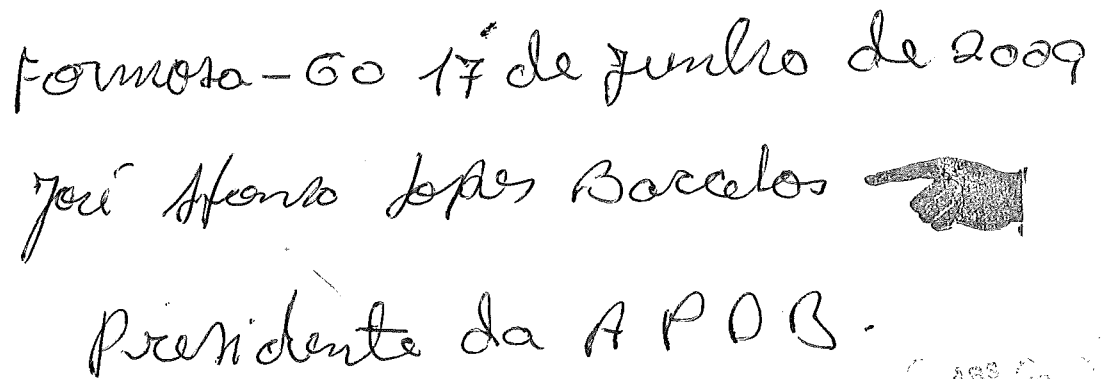 Formosa-GO 17 de Junho de 2009
José Afonso Lopes Barcelos
Presidente da A P D B.